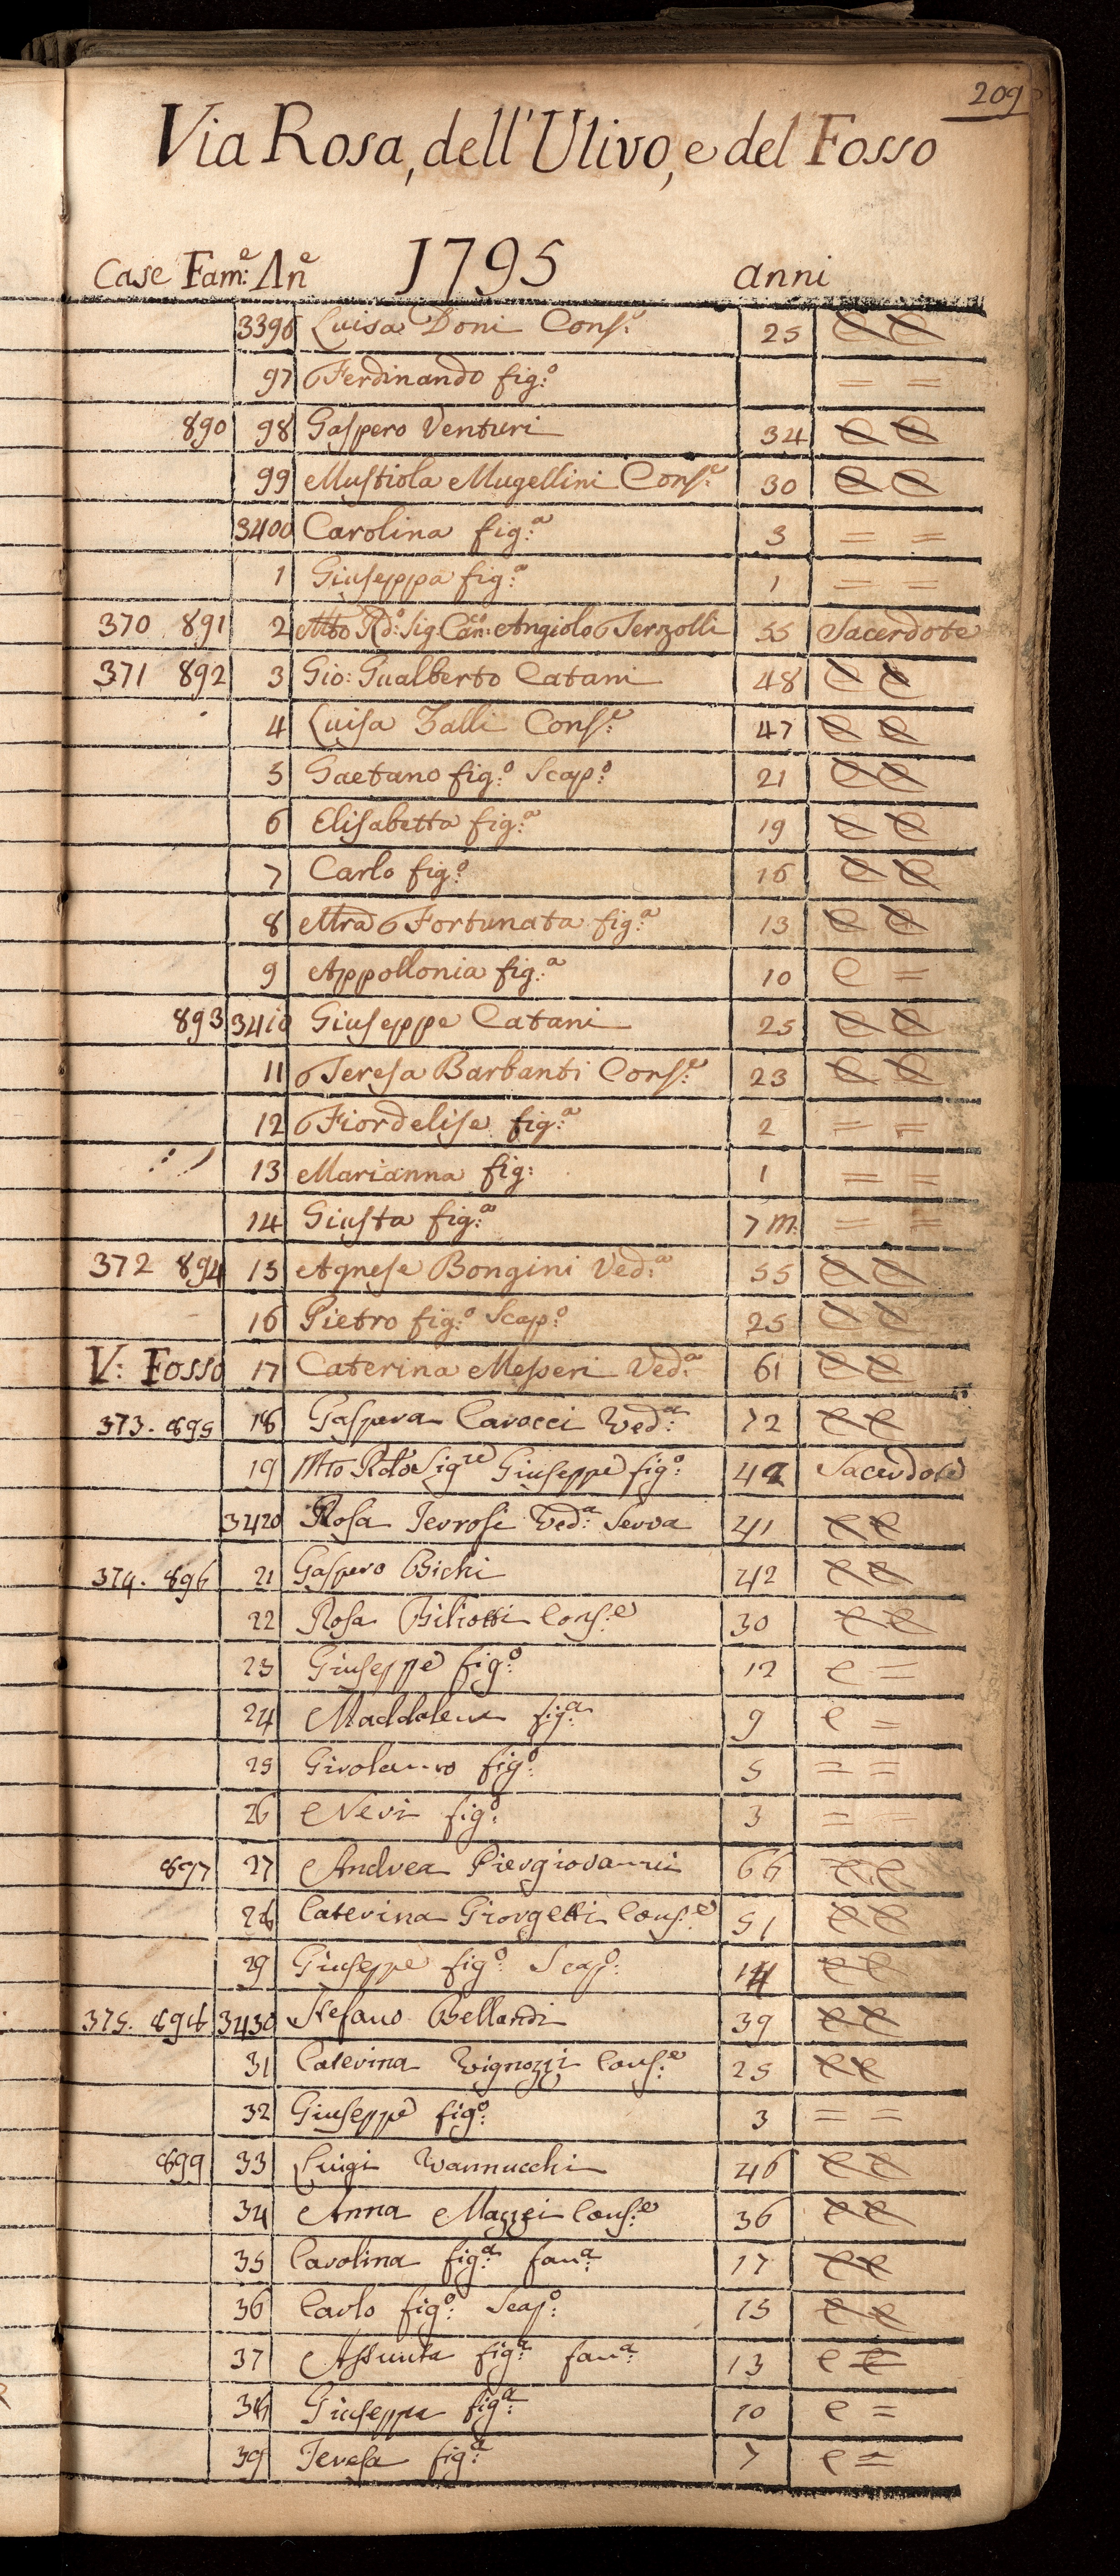 209
Via Rosa, dell'Ulivo, e del Fosso
Case Fam:e An:e 1795 anni
3396 Luisa Doni Cons:e 25 C C
97 Ferdinando fig:o = =
890 98 Gaspero Venturi 34 C C
99 Mustiola Mugellini Cons:e 30 C C
3400 Carolina fig:a 3 = =
1 Giuseppa fig:a 1 = =
370 891 2 Mto Rdo: Sig: Can:co Angiolo Terzolli 55 Sacerdote
371 892 3 Gio: Gualberto Catani 48 C C
4 Luisa Zalli Cons:e 47 C C
5 Gaetano fig:o Scap:o 21 C C
6 Elisabetta fig:a 19 C C
7 Carlo fig:o 16 C C
8 Mra Fortunata fig:a 13 C C
9 Appollonia fig:a 10 C =
893 3410 Giuseppe Catani 25 C C
11 Teresa Barbanti Cons:e 23 C C
12 Fiordelise fig:a 2 = =
13 Marianna fig: 1 = =
14 Giusta fig:a 7 m. = =
372 894 15 Agnese Bongini Ved:a 55 C C
16 Pietro fig:o Scap:o 25 C C
V: Fosso 17 Caterina Messeri Ved:a 61 C C
373. 895 18 Gaspera Carocci Ved:a 72 C C
19 Mto Rdo Sigre Giuseppe fig:o 42 Sacerdote
3420 Rosa Ierrosi Ved:a Serva 41 C C
374. 896 21 Gaspero Bichi 42 C C
22 Rosa Biliotti Cons:e 30 C C
23 Giuseppe fig:o 12 C =
24 Maddalena fig:a 9 C =
25 Girolamo fig:o 5 = =
26 Neri fig:o 3 = =
897 27 Andrea Piergiovanni 66 C C
28 Caterina Giorgetti Cons:e 51 C C
29 Giuseppe fig:o Scap:o 14 C C
375. 898 3430 Stefano Bellandi 39 C C
31 Caterina Vignozzi Cons:e 25 C C
32 Giuseppe fig:o 3 = =
899 33 Luigi Vannucchi 46 C C
34 Anna Mazzei Cons:e 36 C C
35 Carolina fig:a fan:a 17 C C
36 Carlo fig:o Scap:o 15 C C
37 Assunta fig:a fan:a 13 C C
38 Giuseppa fig:a 10 C =
39 Teresa fig:a 7 C =